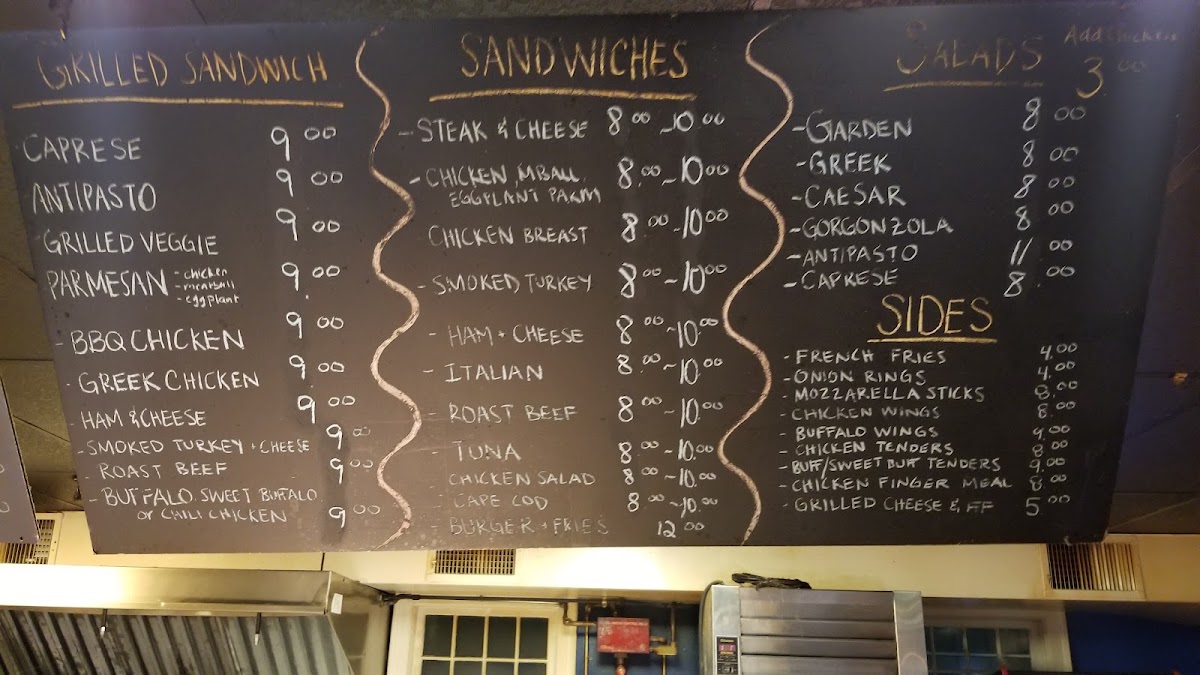 GRILLED SANDWICH
CAPRESE 9.00
ANTIPASTO 9.00
- GRILLED VEGGIE 9.00
PARMESAN - chicken 9.00
- meatball
- eggplant
- BBQ CHICKEN 9.00
- GREEK CHICKEN 9.00
- HAM & CHEESE 9.00
- SMOKED TURKEY + CHEESE 9.00
- ROAST BEEF 9.00
- BUFFALO, SWEET BUFFALO
OR CHILI CHICKEN 9.00
SANDWICHES
- STEAK & CHEESE 8.00 ~ 10.00
- CHICKEN, MBALL, 8.00 ~ 10.00
EGGPLANT PARM
CHICKEN BREAST 8.00 ~ 10.00
- SMOKED TURKEY 8.00 ~ 10.00
- HAM + CHEESE 8.00 ~ 10.00
- ITALIAN 8.00 ~ 10.00
- ROAST BEEF 8.00 ~ 10.00
- TUNA 8.00 ~ 10.00
CHICKEN SALAD 8.00 ~ 10.00
- CAPE COD 8.00 ~ 10.00
- BURGER + FRIES 12.00
SALADS
Add Chicken
3.00
- GARDEN 8.00
- GREEK 8.00
- CAESAR 8.00
- GORGONZOLA 8.00
- ANTIPASTO 11.00
- CAPRESE 8.00
SIDES
- FRENCH FRIES 4.00
- ONION RINGS 4.00
- MOZZARELLA STICKS 8.00
- CHICKEN WINGS 8.00
- BUFFALO WINGS 9.00
- CHICKEN TENDERS 8.00
- BUFF/SWEET BUFF TENDERS 9.00
- CHICKEN FINGER MEAL 8.00
- GRILLED CHEESE & FF 5.00